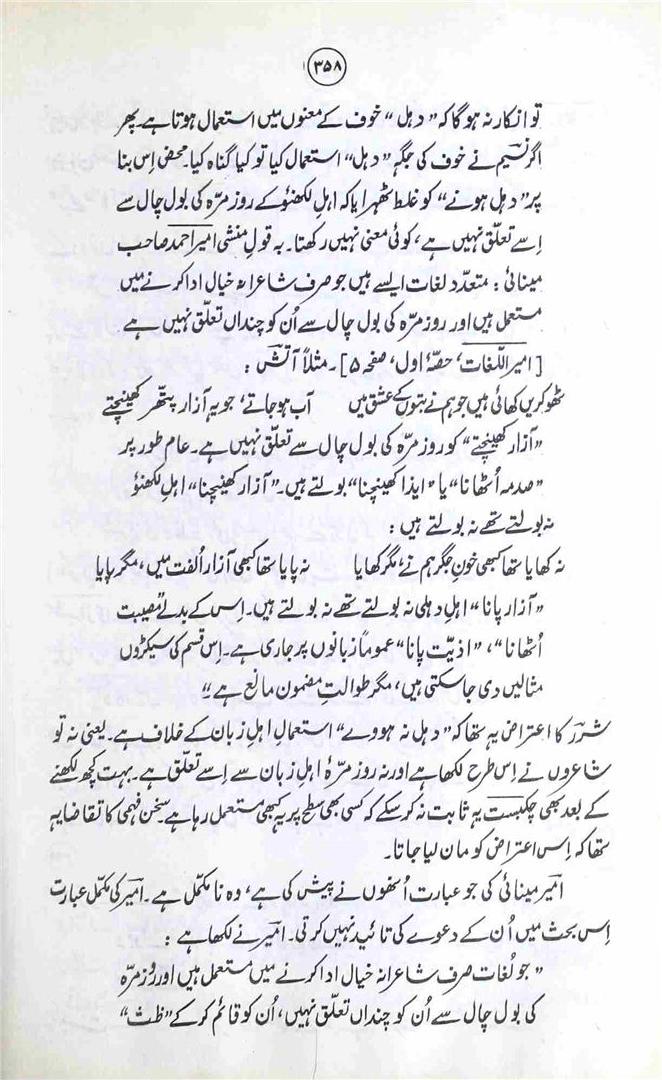 ۳۵۸
تو انکار نہ ہوگا کہ ”دہل“ خوف کے معنوں میں استعمال ہوتا ہے۔ پھر
اگر نسیم نے خوف کی جگہ ”دہل“ استعمال کیا تو کیا گناہ کیا۔ محض اِس بنا
پر ”دہل ہونے“ کو غلط ٹھہرایا کہ اہلِ لکھنؤ کے روز مرّہ کی بول چال سے
اِسے تعلّق نہیں ہے، کوئی معنی نہیں رکھتا۔ بہ قولِ منشی امیر احمد صاحب
مینائی: متعدّد لغات ایسے ہیں جو صرف شاعرانہ خیال ادا کرنے میں
مستعمل ہیں اور روز مرّہ کی بول چال سے اُن کو چنداں تعلّق نہیں ہے
[امیر اللّغات، حصّۂ اول، صفحہ ۵]۔ مثلاً آتش:
ٹھوکریں کھائی ہیں جو ہم نے بتوں کے عشق میں آب ہو جاتے، جو یہ آزار پتّھر کھینچتے
”آزار کھینچتے“ کو روز مرّہ کی بول چال سے تعلّق نہیں ہے۔ عام طور پر
”صدمہ اُٹھانا“ یا ”ایذا کھینچنا“ بولتے ہیں۔ ”آزار کھینچنا“ اہلِ لکھنؤ
نہ بولتے تھے نہ بولتے ہیں:
نہ کھایا تھا کبھی خونِ جگر ہم نے، مگر کھایا نہ پایا تھا کبھی آزار اُلفت میں، مگر پایا
”آزار پانا“ اہلِ دہلی نہ بولتے تھے نہ بولتے ہیں۔ اِس کے بدلے ”مصیبت
اُٹھانا“، ”اذیّت پانا“ عموماً زبانوں پر جاری ہے۔ اِس قسم کی سیکڑوں
مثالیں دی جاسکتی ہیں، مگر طوالتِ مضمون مانع ہے“
شرر کا اعتراض یہ تھا کہ ”دہل نہ ہووے“ استعمالِ اہلِ زبان کے خلاف ہے۔ یعنی نہ تو
شاعروں نے اِس طرح لکھا ہے اور نہ روز مرّۂ اہلِ زبان سے اِسے تعلّق ہے۔ بہت کچھ لکھنے
کے بعد بھی چکبست یہ ثابت نہ کرسکے کہ کسی بھی سطح پر یہ کبھی مستعمل رہا ہے۔ سخن فہمی کا تقاضا یہ
تھا کہ اِس اعتراض کو مان لیا جاتا۔
امیر مینائی کی جو عبارت اُنھوں نے پیش کی ہے، وہ نامکمّل ہے۔ امیر کی مکمّل عبارت
اِس بحث میں اُن کے دعوے کی تائید نہیں کرتی۔ امیر نے لکھا ہے:
”جو لُغات صرف شاعرانہ خیال ادا کرنے میں مستعمل ہیں اور روز مرّہ
کی بول چال سے اُن کو چنداں تعلّق نہیں، اُن کو قائم کرکے ”ظث“